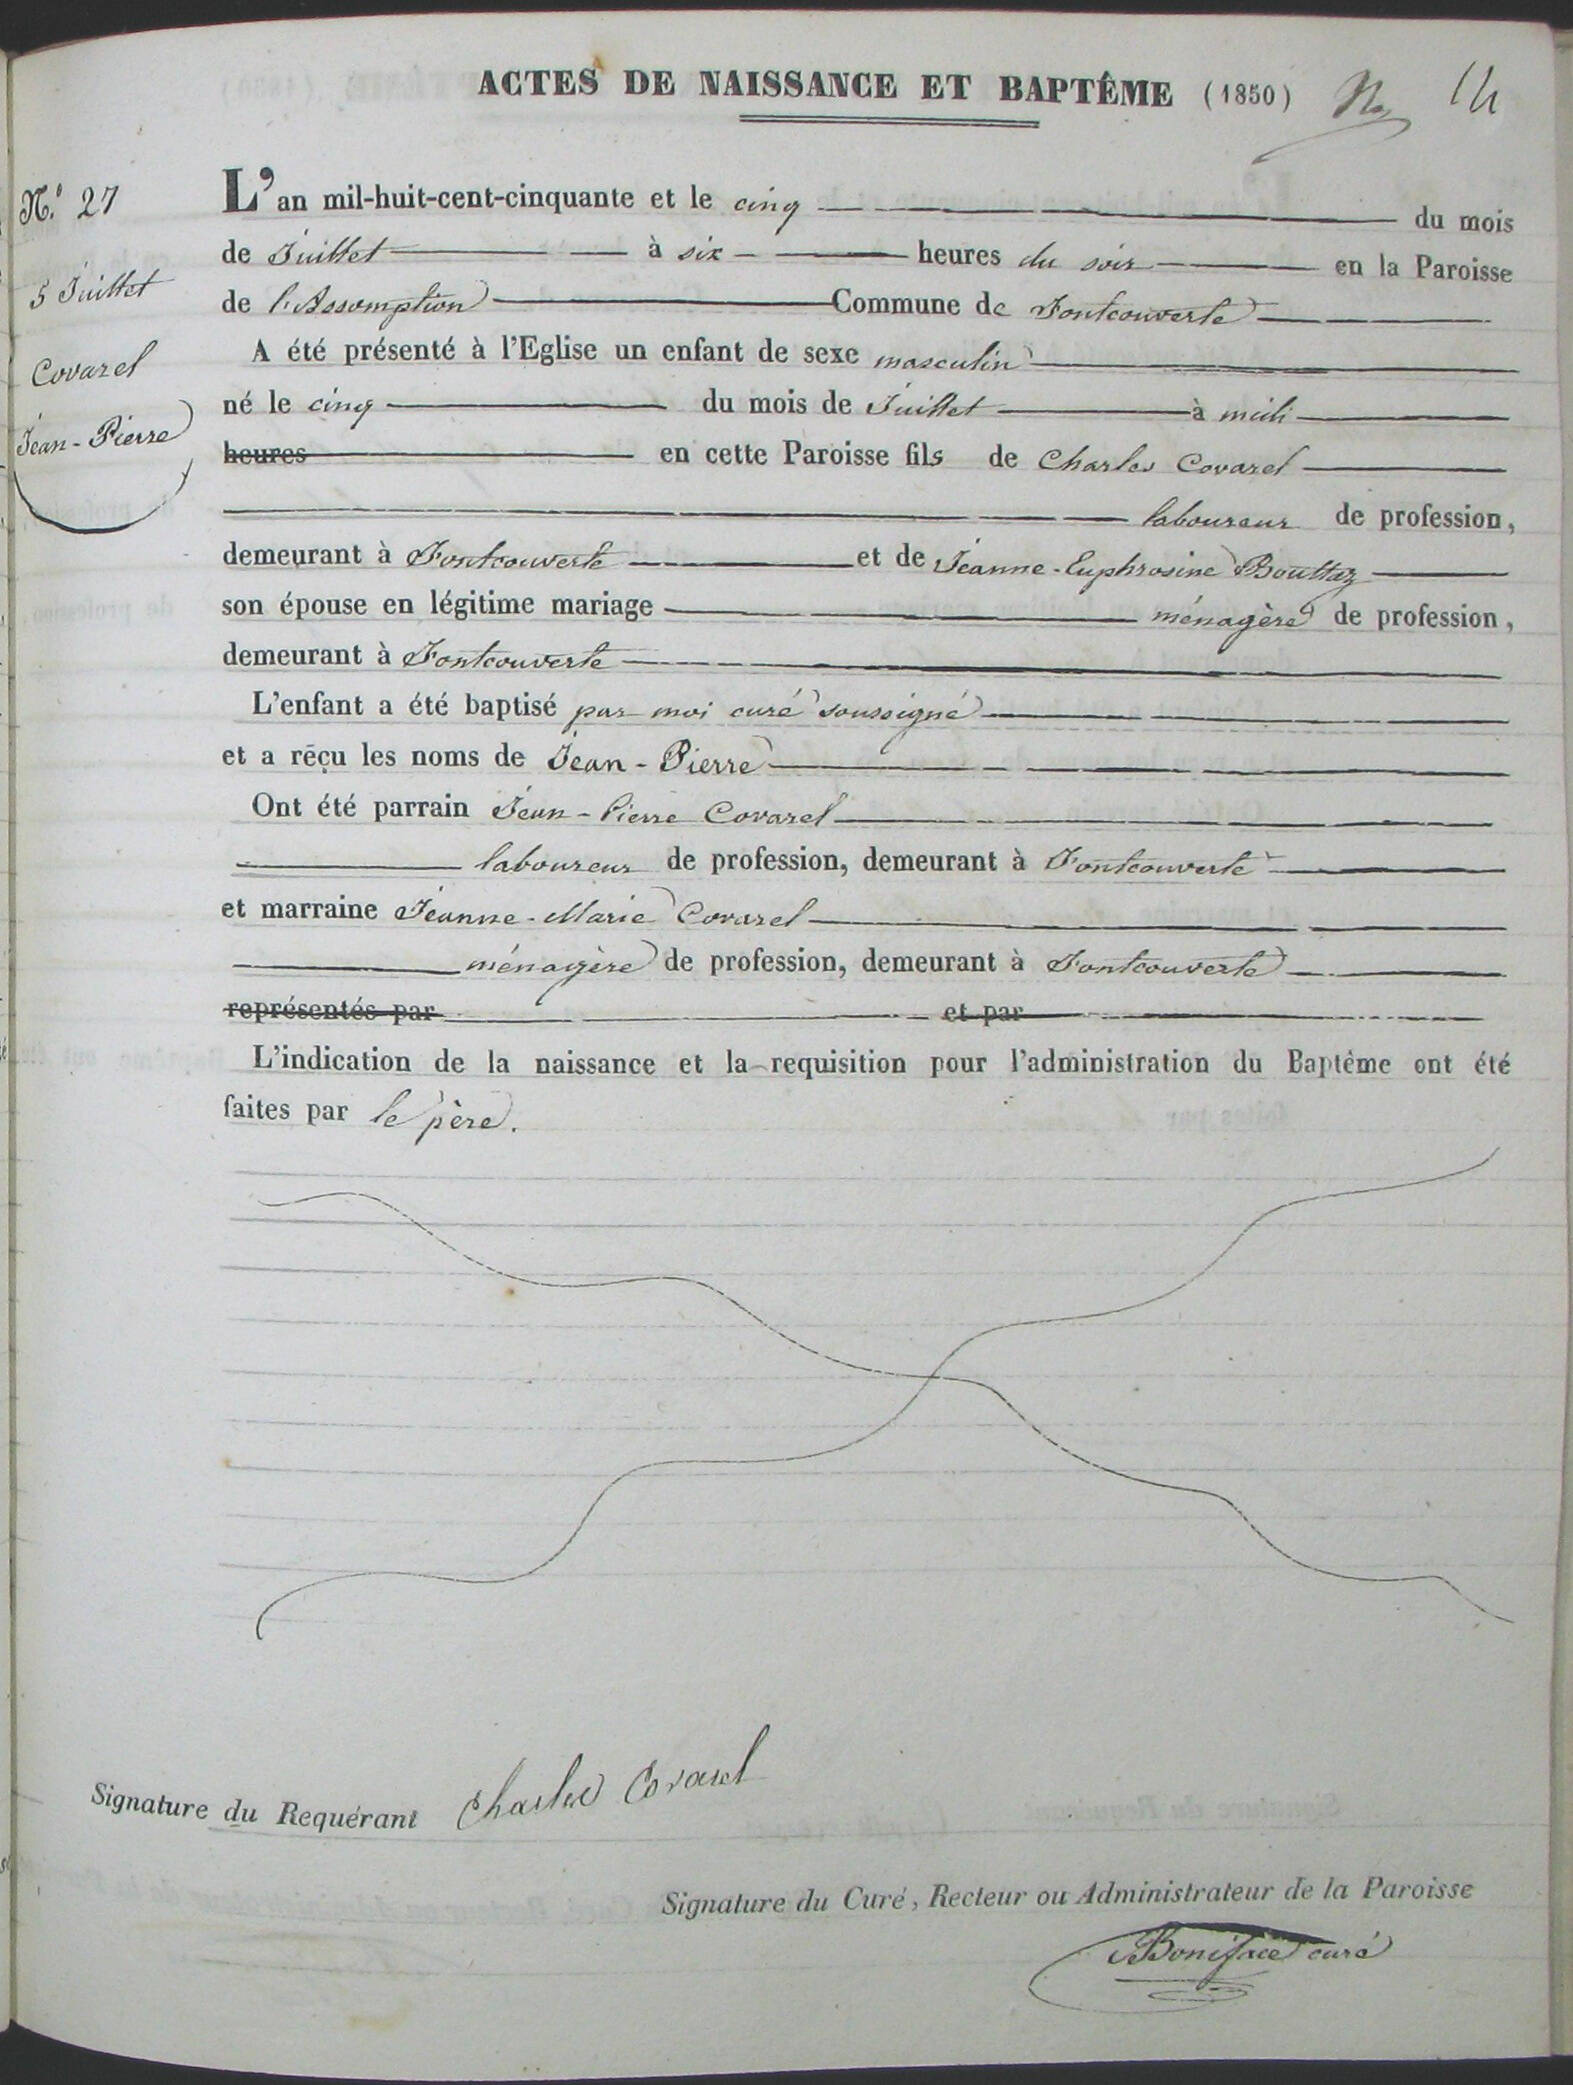 ACTES DE NAISSANCE ET BAPTÊME (1850) 14
N.º 27
5 Juillet
Covarel
Jean-Pierre
L'an mil-huit-cent-cinquante et le cinq du mois
de Juillet à six heures du soir en la Paroisse
de l'Assomption Commune de Fontcouverte
A été présenté à l'Eglise un enfant de sexe masculin
né le cinq du mois de Juillet à midi
heures en cette Paroisse fils de Charles Covarel
laboureur de profession,
demeurant à Fontcouverte et de Jeanne-Euphrosine Bouttaz
son épouse en légitime mariage ménagère de profession,
demeurant à Fontcouverte
L'enfant a été baptisé par moi curé soussigné
et a reçu les noms de Jean-Pierre
Ont été parrain Jean-Pierre Covarel
laboureur de profession, demeurant à Fontcouverte
et marraine Jeanne-Marie Covarel
ménagère de profession, demeurant à Fontcouverte
représentés par et par
L'indication de la naissance et la requisition pour l'administration du Baptême ont été
faites par le père.
Signature du Requérant Charles Covarel
Signature du Curé, Recteur ou Administrateur de la Paroisse
Boniface curé